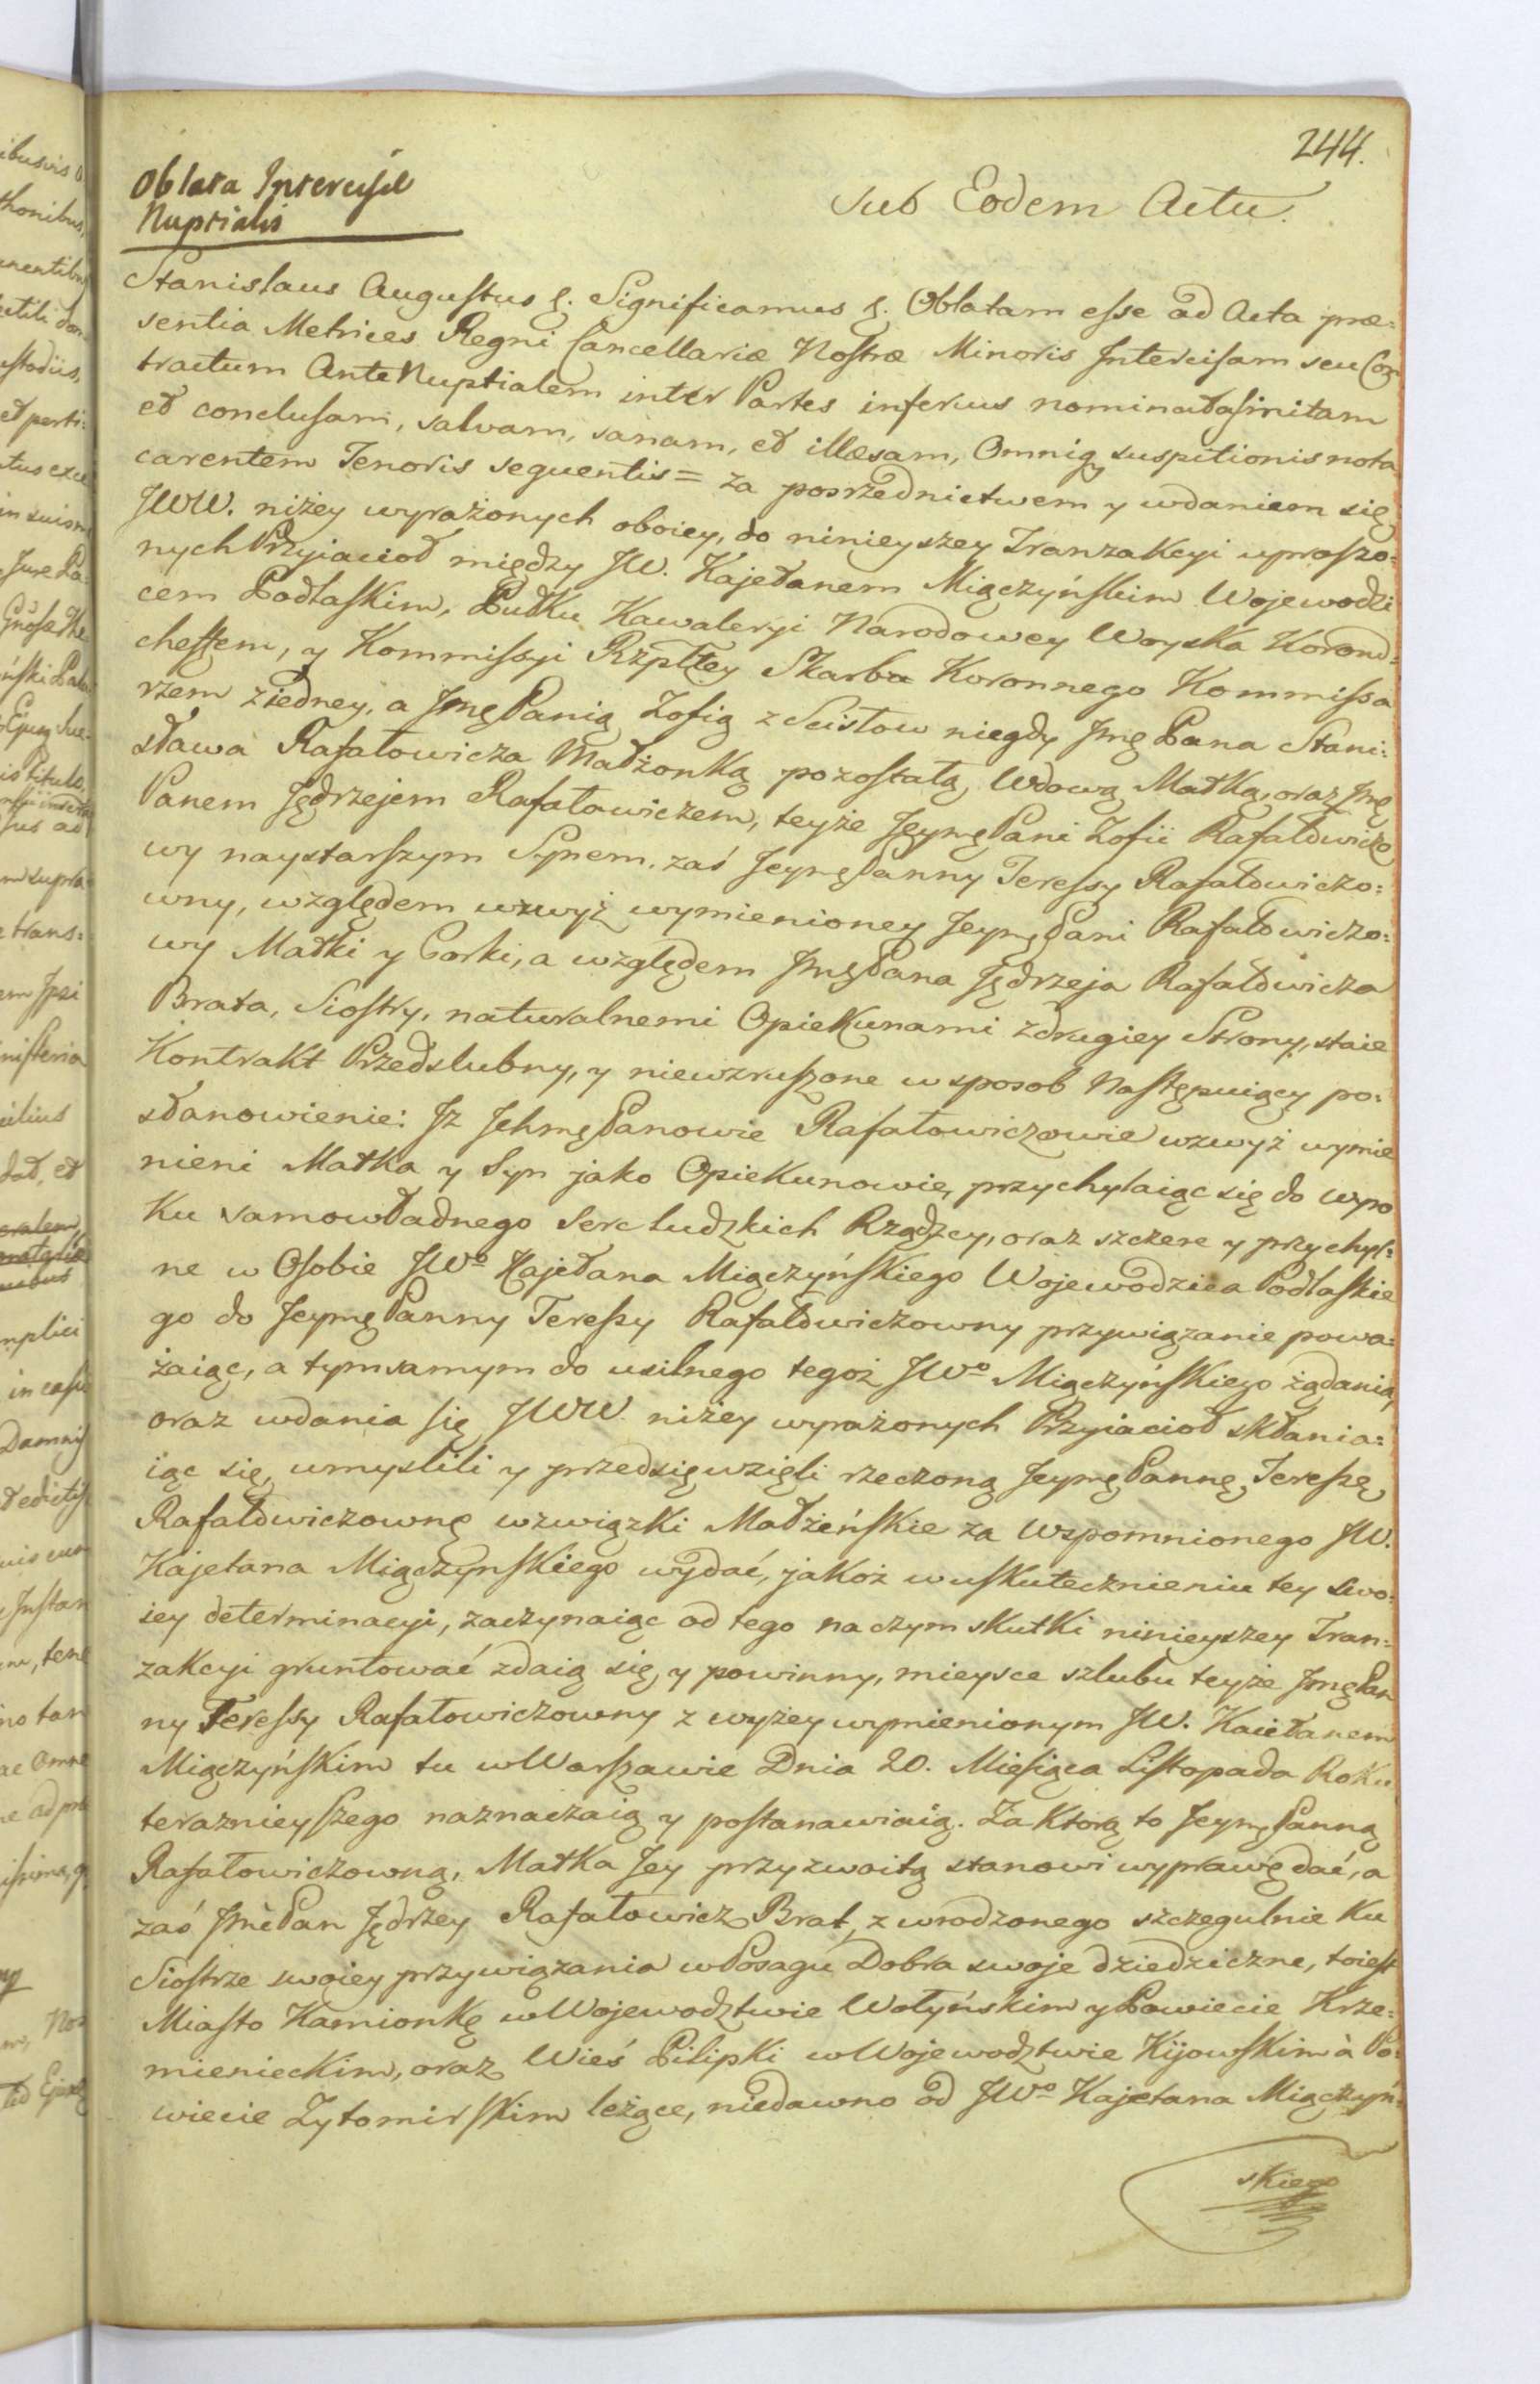 244.
Oblata Intercisæ
Nuptialis
Sub Eodem Actu.
Stanislaus Augustus &. Significamus &. Oblatam esse ad Acta præ:
sentia Metrices Regni Cancellariæ Nostræ Minoris Intercisam seu Con
tractum AnteNuptialem inter Partes inferius nominatas initam
et conclusam, salvam, sanam, et illæsam, Omniq suspitionis nota
carentem Tenoris sequentis = Za posrzednictwem y wdaniem się
JWW. niżey wyrażonych oboiey, do ninieyszey Tranzakcyi uproszo:
nych Przyjacioł między JW. Kajetanem Miączyńskim Wojewodzi
cem Podlaskim, Pułku Kawaleryi Narodowey Woyska Koron:
chessem, y Kommissyi Rzpltey Skarbu Koronnego Kommissa
rzem z iedney, a Jmę Panią Zofią z Scislow niegdy Jmę Pana Stani:
sława Rafałowicza Małżonką pozostałą Wdową Matką, oraz Jmę
Panem Jędrzejem Rafałowiczem, teyże Jeymę Pani Zofii Rafałowiczo
wy naystarszym Synem. zaś Jeymę Panny Teressy Rafałowiczo:
wny, względem wzwyż wymienioney Jeymę Pani Rafałowiczo:
wy Matki y Corki, a względem Jmę Pana Jędrzeja Rafałowicza
Brata, Siostry, naturalnemi Opiekunami z drugiey Strony, staie
Kontrakt Przedslubny, y niewzruszone w sposob Następuiący po:
stanowienie: Jz Jchmę Panowie Rafałowiczowie wzwyż wymie
nieni Matka y Syn jako Opiekunowie, przychylaiąc się do wyro
Ku samowładnego Serc ludzkich Rządzcy, oraz szczere y przychyl:
ne w Osobie JWo Kajetana Miączyńskiego Wojewodzica Podlaskie
go do Jeymę Panny Teressy Rafałowiczowny przywiązanie powa:
żaiąc, a tymsamym do usilnego tegoż JWo Miączyńskiego żądania,
oraz wdania się JWW. niżey wyrażonych Przyiacioł skłania:
iąc się, umyslili y przedsięwzięli rzeczoną Jeymę Pannę Teressę
Rafałowiczownę w związki Małżeńskie za Wspomnionego JW.
Kajetana Miączynskiego wydać, jakoż w uskutecznieniu tey swo:
iey determinacyi, zaczynaiąc od tego na czym skutki ninieyszey Tran:
zakcyi gruntować zdaią się, y powinny, mieysce szlubu teyże Jmę Pan
ny Teressy Rafałowiczowny z wyżey wymienionym JW. Kaietanem
Miączyńskim tu w Warszawie Dnia 20. Miesiąca Listopada Roku
teraznieyszego naznaczaią y postanawiaią. Za Ktorą to Jeymę Panną
Rafałowiczowną, Matka Jey przyzwoitą stanowi wyprawę dać, a
zaś Jmć Pan Jędrzey Rafałowicz Brat, z wrodzonego szczegulnie Ku
Siostrze swoiey przywiązania w Posagu Dobra swoje dziedziczne, toiest
Miasto Kamionkę w Wojewodztwie Wołyńskim y Powiecie Krze:
mienieckim, oraz Wieś Pilipki w Wojewodztwie Kijowskim à Po:
wiecie Zytomirskim leżące, niedawno od JWo Kajetana Miączyń:
skiego